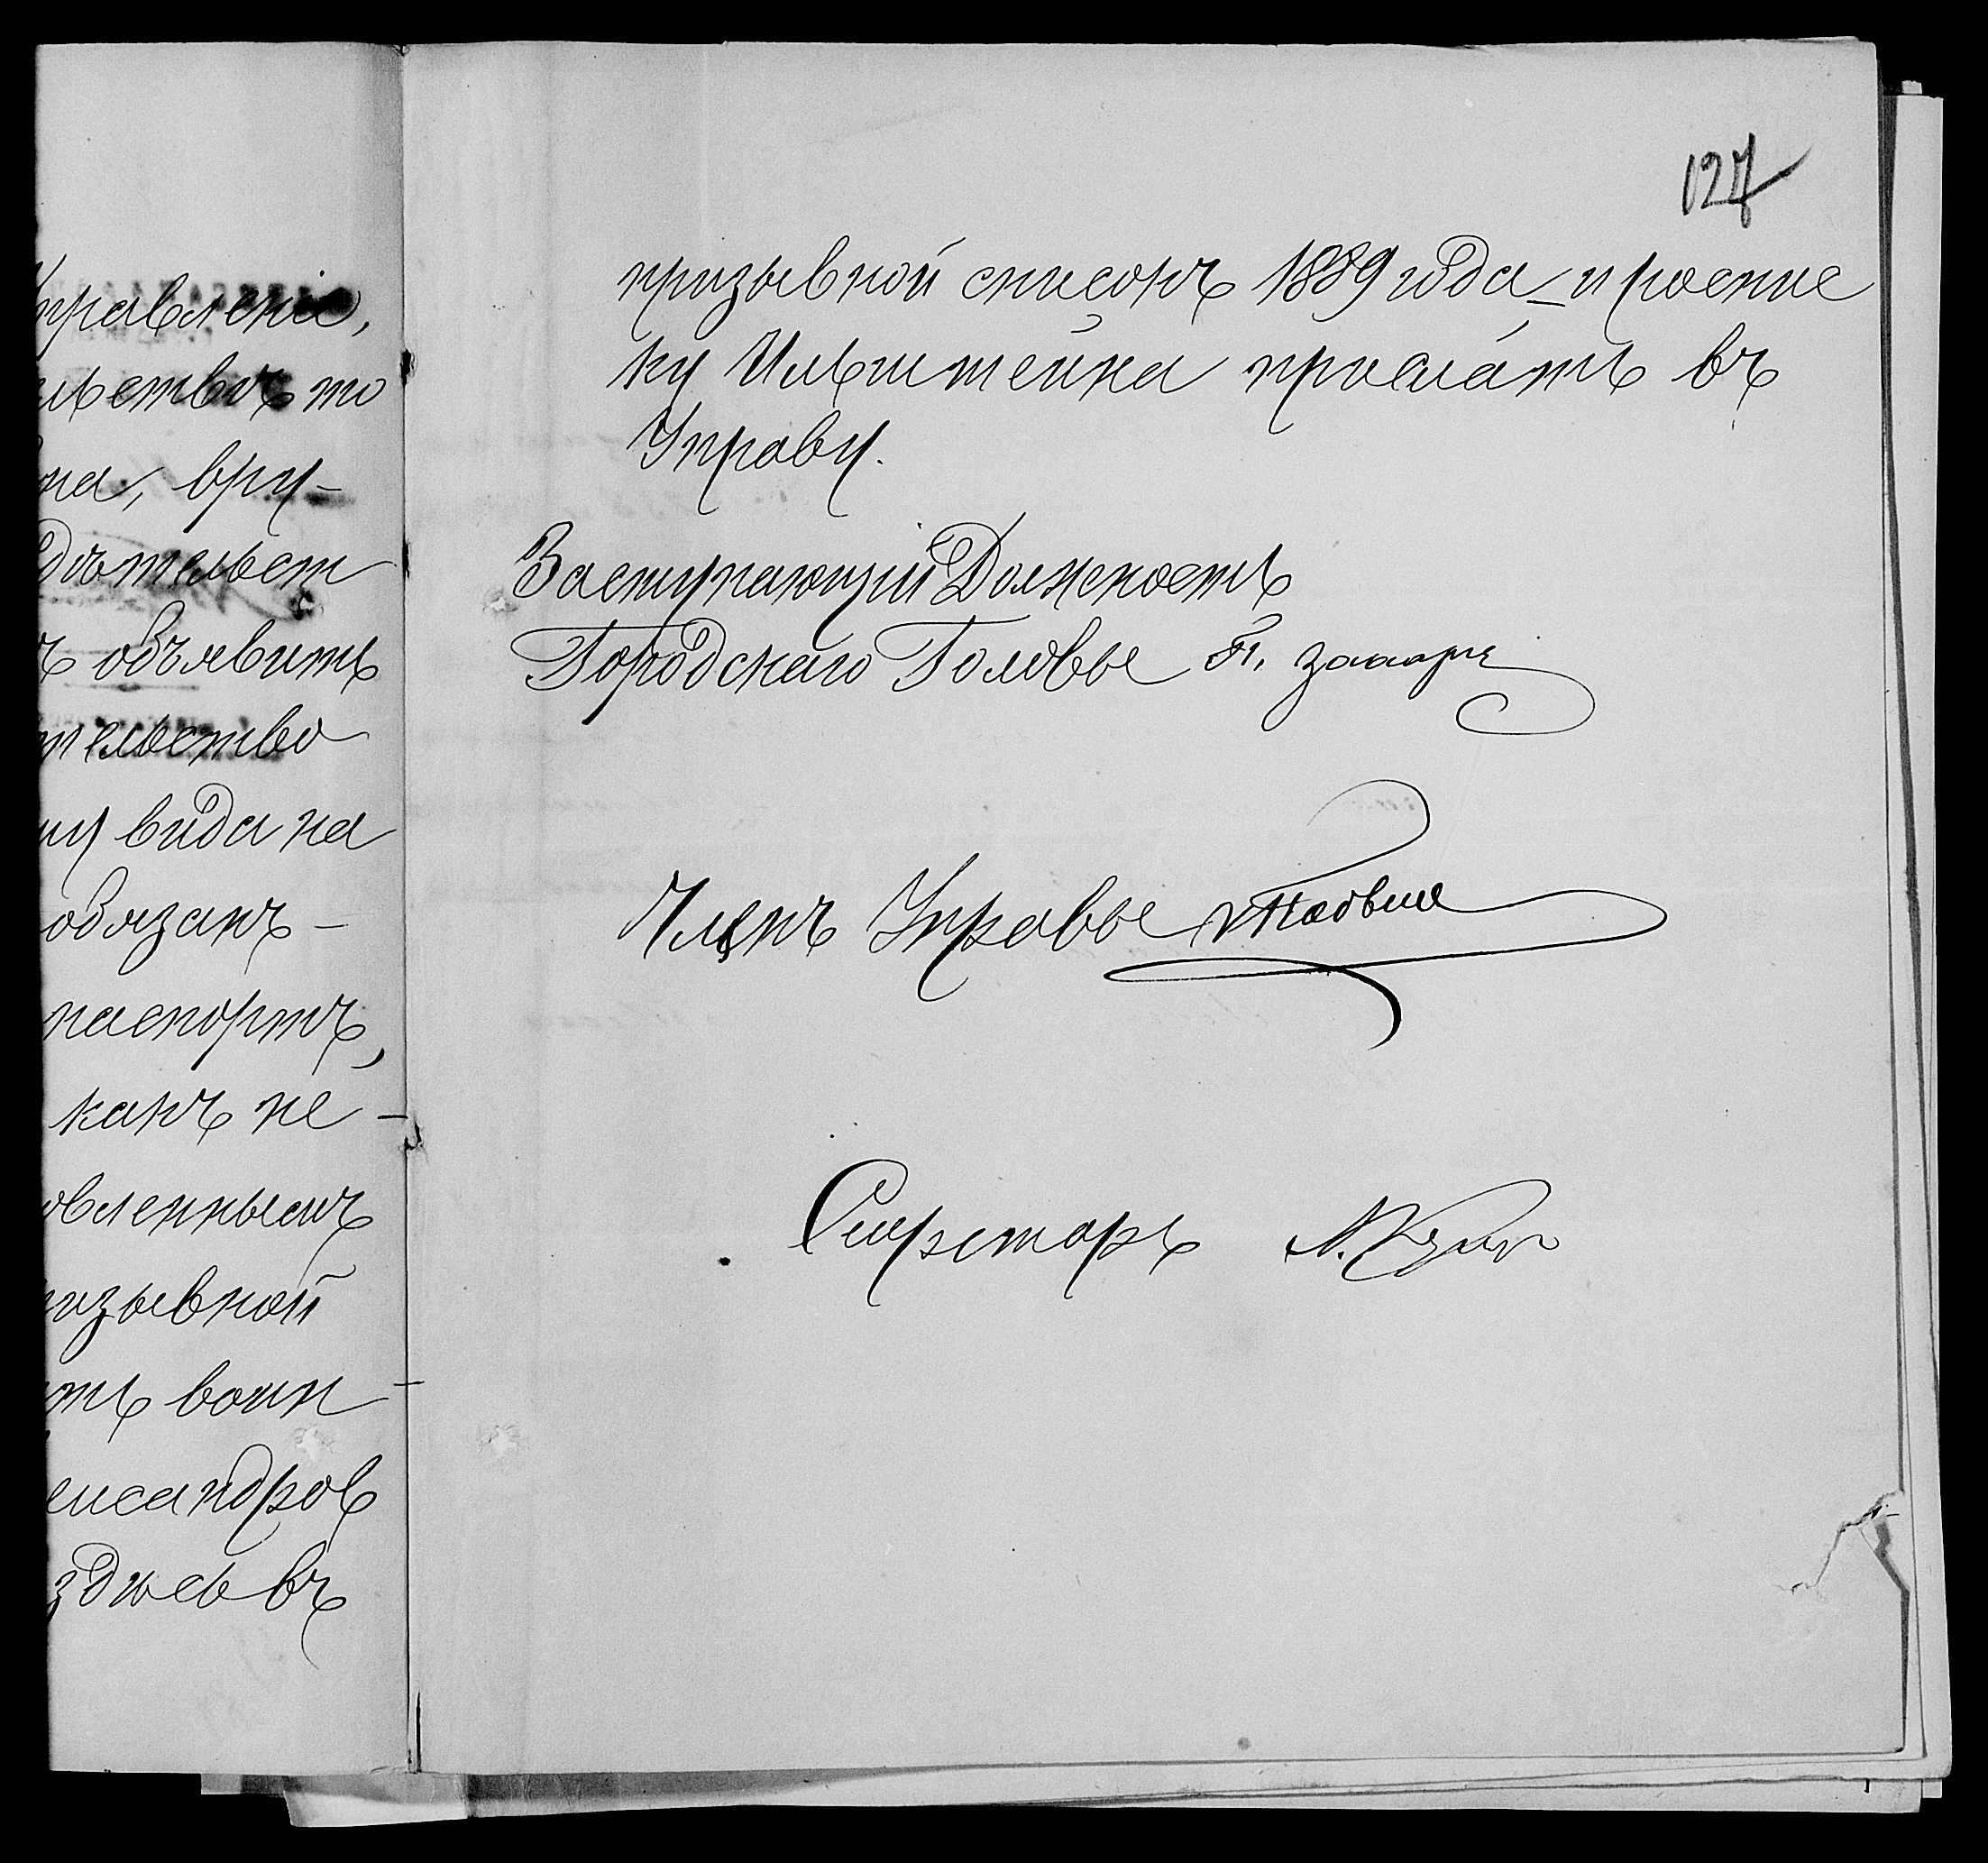 правленія,
льствъ то
на, вру-
дѣтельст
ъ объявить
тельство
му вида на
обязанъ -
паспортъ,
какъ не -
овленнымъ
изывной
ть воин -
ександров
здѣсь въ
127
призывной списокъ 1889 года и роспис
ку Ильштейна прислать въ
Управу.
Заступающій Должность
Городскаго Головы
Членъ Управы
Секретарь